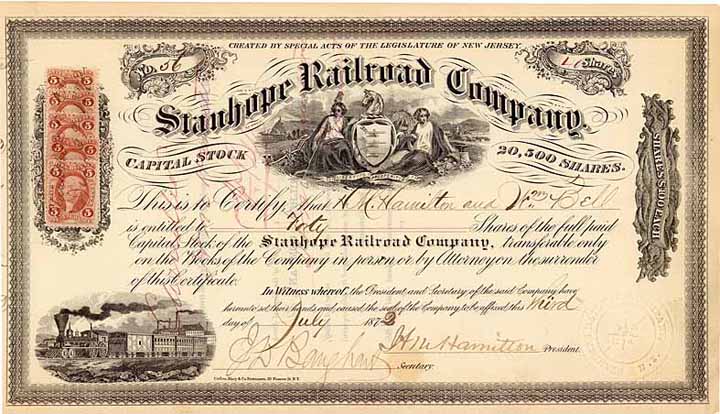 CREATED BY SPECIAL ACTS OF THE LEGISLATURE OF NEW JERSEY.
No. 56
Shares
Stanhope Railroad Company.
CAPITAL STOCK
20,500 SHARES.
SHARES $100 EACH
This is to Certify, that H. M. Hamilton and Wm Bell
is entitled to Foty Shares of the full paid
Capital Stock of the Stanhope Railroad Company, transferable only
on the Books of the Company in person or by Attorney on the surrender
of this Certificate.
In Witness whereof, the President and Secretary of the said Company have
hereunto set their hands and caused the seal of the Company to be affixed this third
day of July 1873
H. M. Hamilton President.
Secretary.
5 5
5 5